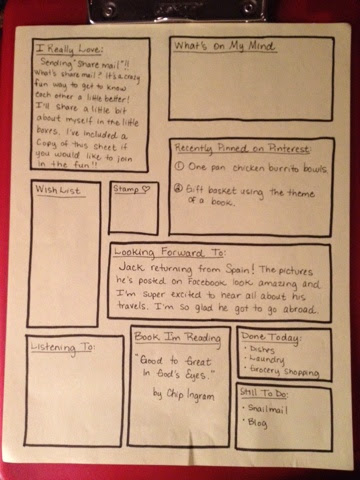 I Really Love:
Sending "Share mail"!!
What's share mail? It's a crazy
fun way to get to know
each other a little better!
I'll share a little bit
about myself in the little
boxes. I've included a
copy of this sheet if
you would like to join
in the fun!!
What's On My Mind
Recently Pinned on Pinterest:
① One pan chicken burrito bowls.
② Gift basket using the theme
of a book.
Wish List
Stamp ♡
Looking Forward To:
Jack returning from Spain! The pictures
he's posted on Facebook look amazing and
I'm super excited to hear all about his
travels. I'm so glad he got to go abroad.
Listening To:
Book I'm Reading
"Good to Great
In God's Eyes."
by Chip Ingram
Done Today:
• Dishes
• Laundry
• Grocery Shopping
Still To Do:
• Snailmail
• Blog